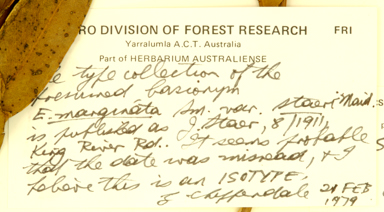 RO DIVISION OF FOREST RESEARCH FRI
Yarralumla A.C.T. Australia
Part of HERBARIUM AUSTRALIENSE
type collection of the
presumed basionym
E. marginata Sm. var. staeri Maid.
is published as J. Staer, 8/1911,
King River Rd. It seems probable
that the date was misread, & I
believe this is an ISOTYPE.
G Chippendale 21 FEB
1979